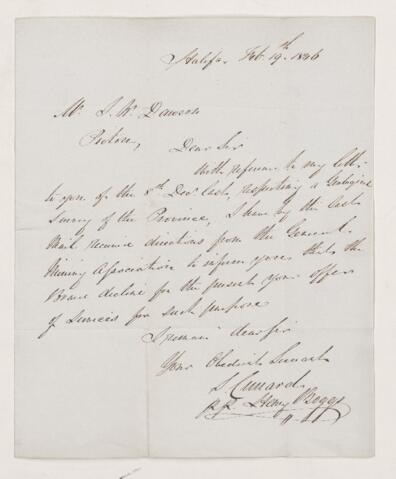 Halifax Feb. 19th 1846
Mr J. W. Dawson
Pictou,
Dear Sir
With reference to my letter
to you of the 8th Decr last, respecting a Geological
Survey of the Province, I have by the last
Mail received directions from the General
Mining Association to inform you that the
Board decline for the present your offer
of Services for such purpose
I remain dear Sir
Your Obedient Servant
S Cunard
Henry Boggs